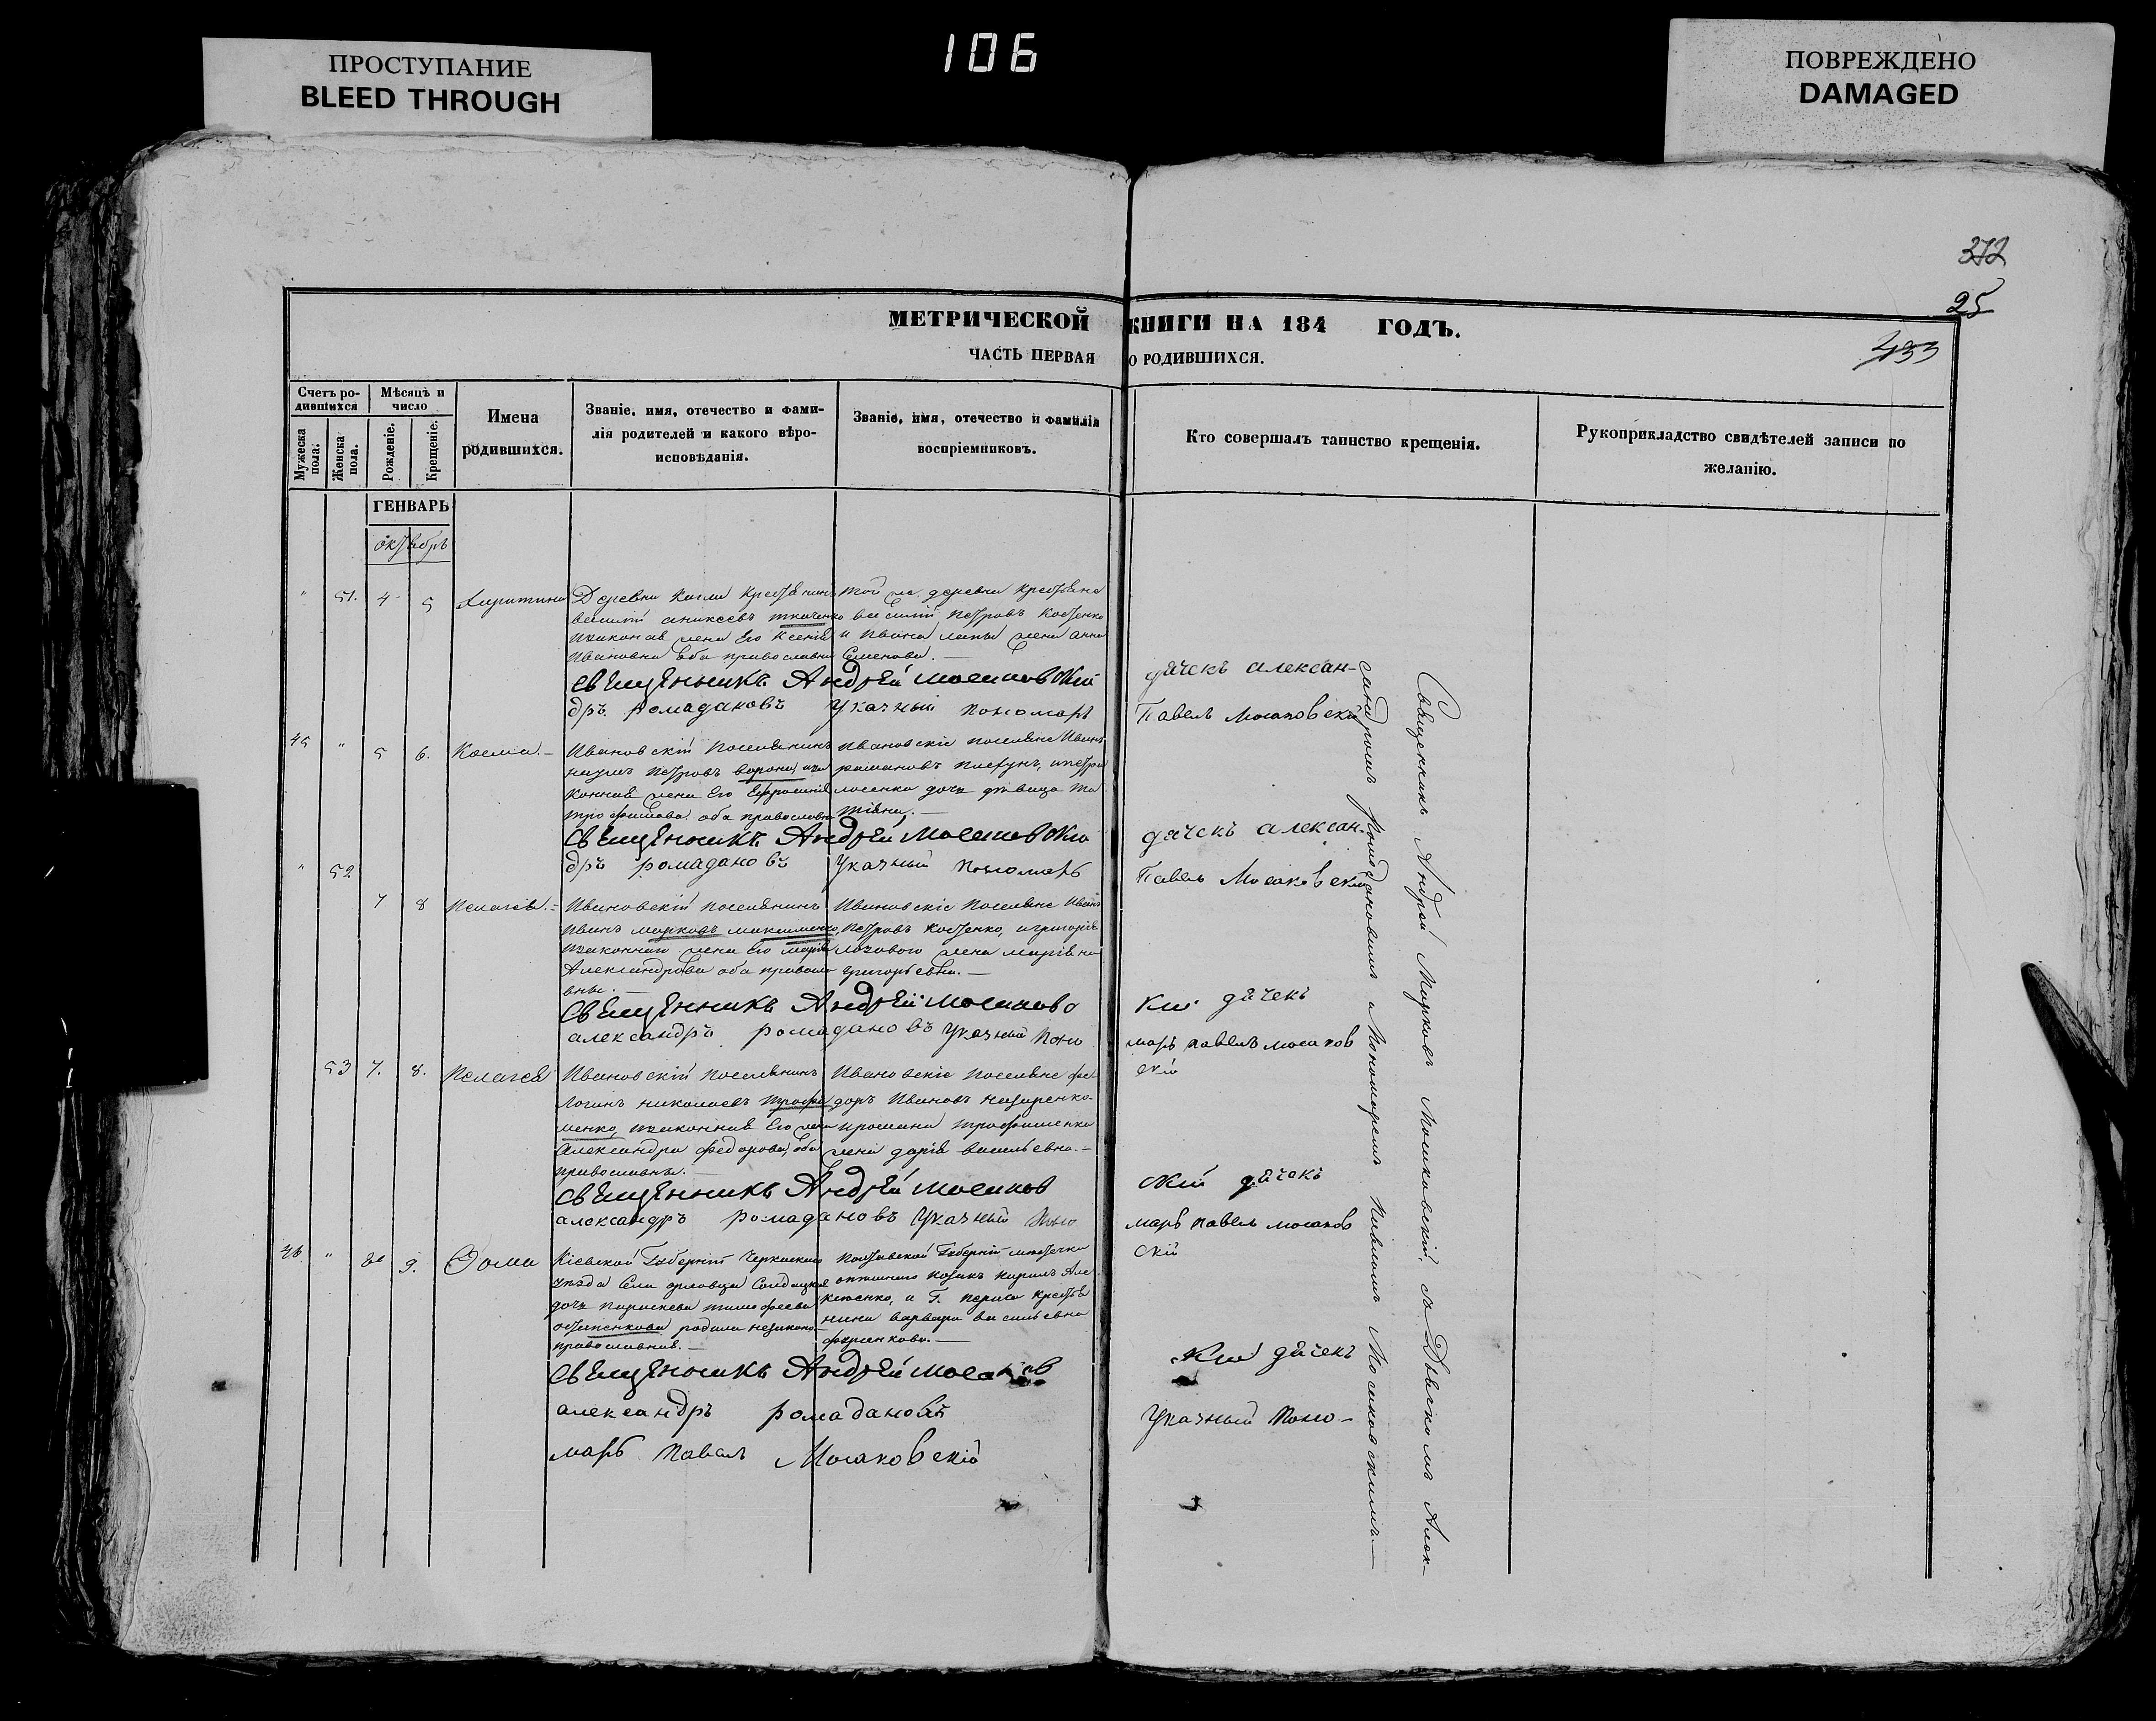 ПРОСТУПАНИЕ
BLEED THROUGH
106
ПОВРЕЖДЕНО
DAMAGED
372
25
433
МЕТРИЧЕСКОЙ КНИГИ НА 184 ГОДЪ.
ЧАСТЬ ПЕРВАЯ О РОДИВШИХСЯ.
Счетъ ро-
дившихся
Мужеска пола.
Женска пола.
Мѣсяцъ и
число
Рожденіе.
Крещеніе.
Имена
родившихся.
Званіе, имя, отечество и фами-
лія родителей и какого вѣро-
исповѣданія.
Званіе, имя, отечество и фамилія
воспріемниковъ.
Кто совершалъ таинство крещенія.
Рукоприкладство свидѣтелей записи по
желанію.
ГЕНВАРЬ
октябрь
" 51. 4 5 Харитина
Деревни
василій аникеевъ ткаченко
жена его Ксенія
Ивановна оба православны
той же деревни крестьяне
василій Петровъ Костенко
и Ивана жена анна
Семенова. —
Священникъ Андрей Мосаковскій дячекъ алексан-
дръ ромадановъ Указный пономарь Павелъ Мосаковскій
45 " 5 6. Косма. —
Ивановскій поселянинъ
наумъ Петровъ ворона, иза
конная жена его Ефросинія
трофимова оба православны
Ивановскіе поселяне Иванъ
романовъ и петра
дочь дѣвица та
тіяна. —
Священникъ Андрей Мосаковскій дячекъ алексан-
дръ ромадановъ Указный Пономарь Павелъ Мосаковскій
" 52 7 8 Пелагея. —
Ивановскій поселянинъ
Иванъ марковъ максименко,
изаконная жена его марія
Александрова оба правосла
вны. —
Ивановскіе поселяне Иванъ
Петровъ Костенко, и григорія
лозового жена марія
григорьевна. —
Священникъ Андрей Мосаковс кій дячекъ
александръ ромадановъ Указный Поно марь павелъ мосаков
скій
53 7. 8. Пелагея
Ивановскій поселянинъ
Логинъ николаевъ трофи
менко, изаконная его жена
Александра федорова, оба
православны. —
Ивановскіе поселяне фе
доръ Ивановъ назаренко
трофименка
жена дарія васильевна. —
Священникъ Андрей Мосаков скій дячекъ
александръ ромадановъ Указный Поно марь павелъ мосаков
скій
46 " 8 9. Фома
Кіевской Губерніи Черкаскаго
уѣзда Села орловца Солдацкая
дочь параскева тимофеева
родила незаконно
православная. —
Полтавской Губерніи мѣстечка
козакъ кирилъ Але
ксѣенко, и Г. крестья
нина варвара васильевна
Священникъ Андрей Мосаков скій дячекъ
александръ ромадановъ Указный Поно-
марь Павелъ Мосаковскій
Священникъ Андрей Марковъ Мосаковскій, съ Дьячкомъ Алек-
сандромъ Ромадановымъ и Пономаремъ Павломъ Мосаковскимъ. —